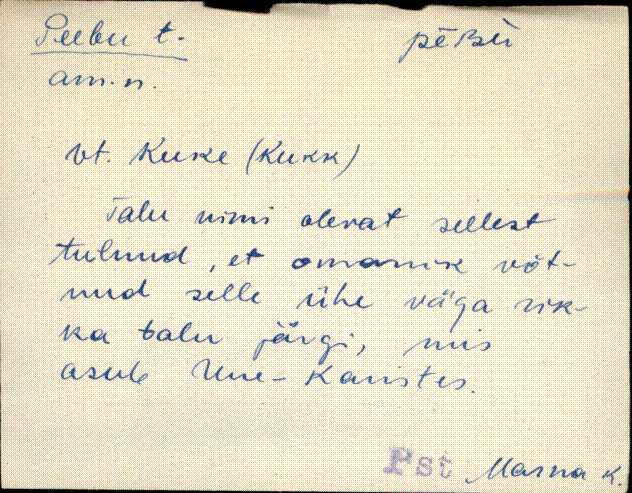 Peebu t. pēBù
am.n.
vt. Kuke (Kukk)
Talu nimi olevat sellest
tulnud, et omanik võt-
nud selle ühe väga rik-
ka talu järgi, mis
asub Uue-Karistes.
Pst Marna k.